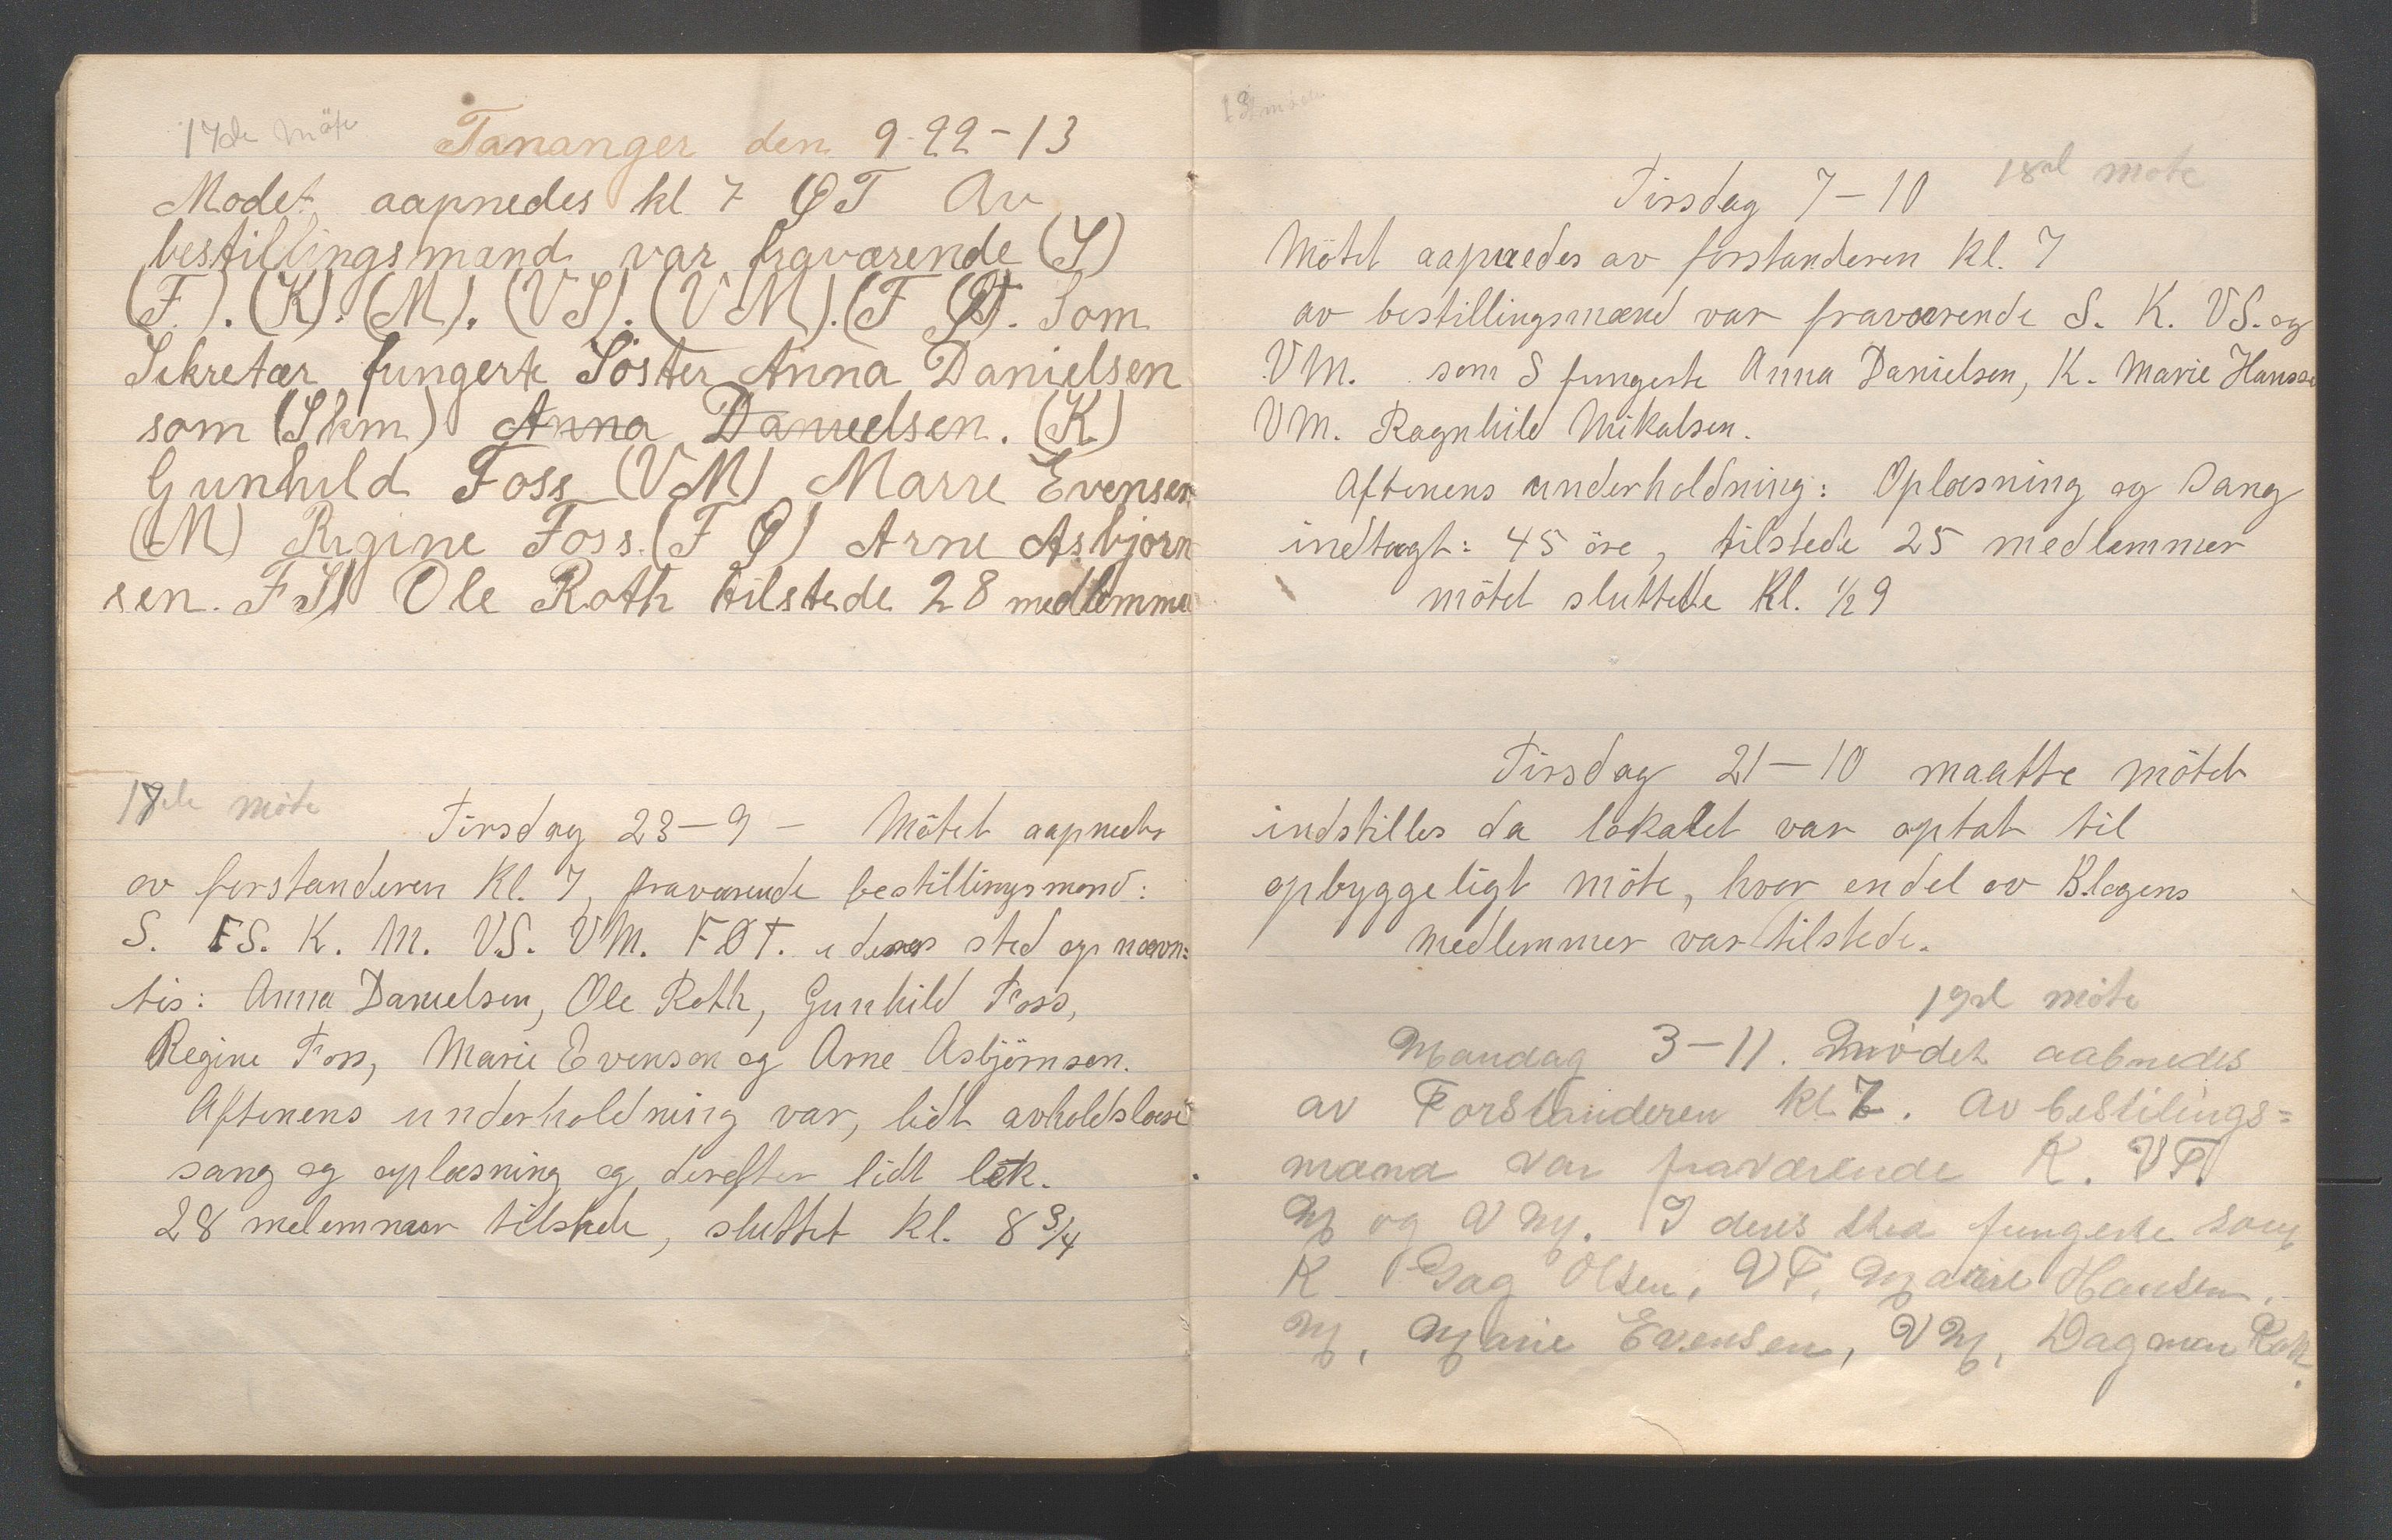 17de Möte
Tananger den 9-22-13
Modet aapnedes kl 7 QT Av
bestillingsmand var fraværende (S)
(F). (K). (M). (VS). (VM). (F QT). Som
Sekretær fungerte Söster Anna Danielsen
som (Skm) Anna Danielsen. (K)
Gunhild Foss (VM) Marie Evensen
(M) Regine Foss. (F Q) Arne Asbjörn
sen. FS) Ole Roth tilstede 28 medlemmer
17de möte
Tirsdag 23-9 - Mötet aapnedes
av forstanderen Kl. 7, fraværende bestillingsmend:
S. FS. K. M. VS. VM. FØT. i deres sted op nævn=
tes: Anna Danielsen, Ole Roth, Gunhild Foss,
Regine Foss, Marie Evensen og Arne Asbjörnsen.
Aftenens underholdning var, lidt avholdslæse
sang og oplæsning og derefter lidt lek.
28 melemmer tilstede, sluttet kl. 8 3/4
18de möte
Tirsdag 7-10
Mötet aapnedes av forstanderen Kl. 7
av bestillingsmænd var fraværende S. K. VS. og
VM. som S fungerte Anna Danielsen, K. Marie Hansen
VM. Ragnhild Mikalsen.
Aftenens underholdning: Oplæsning og Sang
indtægt: 45 öre, tilstede 25 medlemmer
mötet sluttede Kl. 1/2 9
Tirsdag 21-10 maatte mötet
indstilles da lokalet var optat til
opbyggeligt möte, hvor endel av B.logens
medlemmer var tilstede.
19de möte
Mandag 3-11. Mödet aabnedes
av Forstanderen kl. 7. Av bestilings=
mænd var fraværende K. VF.
M og VM. I deres sted fungerte som
K Dag Olsen, VF, Marie Hansen.
M, Marie Evensen, VM, Dagmar Roth.